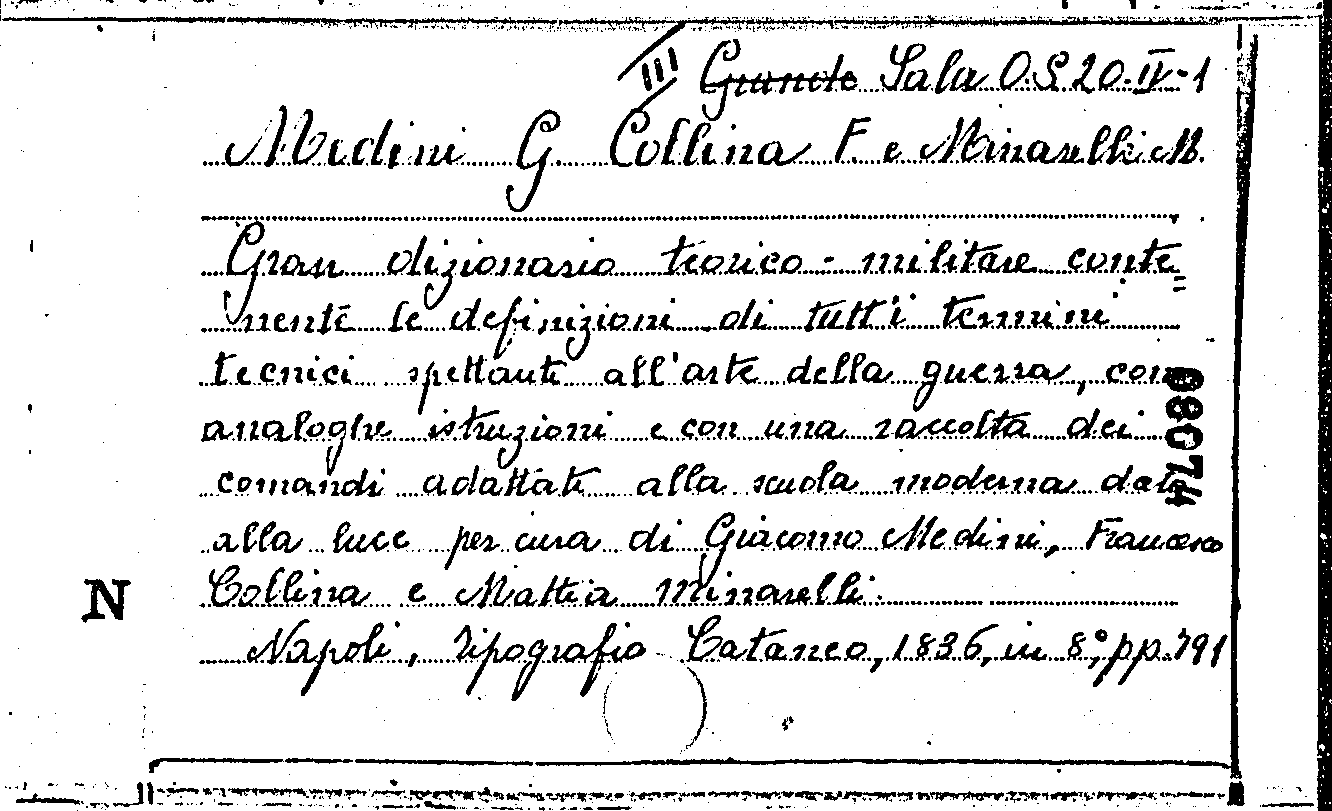 III Grande Sala O.S. 20.IV-1
Medini G. Collina F. e Minarelli M.
Gran dizionario teorico-militare conte=
nente le definizioni di tutt'i termini
tecnici spettanti all'arte della guerra, con
analoghe istruzioni e con una raccolta dei
comandi adattati alla scuola moderna dato
alla luce per cura di Giacomo Medini, Francesco
Collina e Mattia Minarelli.
Napoli, Tipografia Cataneo, 1836, in 8°, pp. 791
08074
N